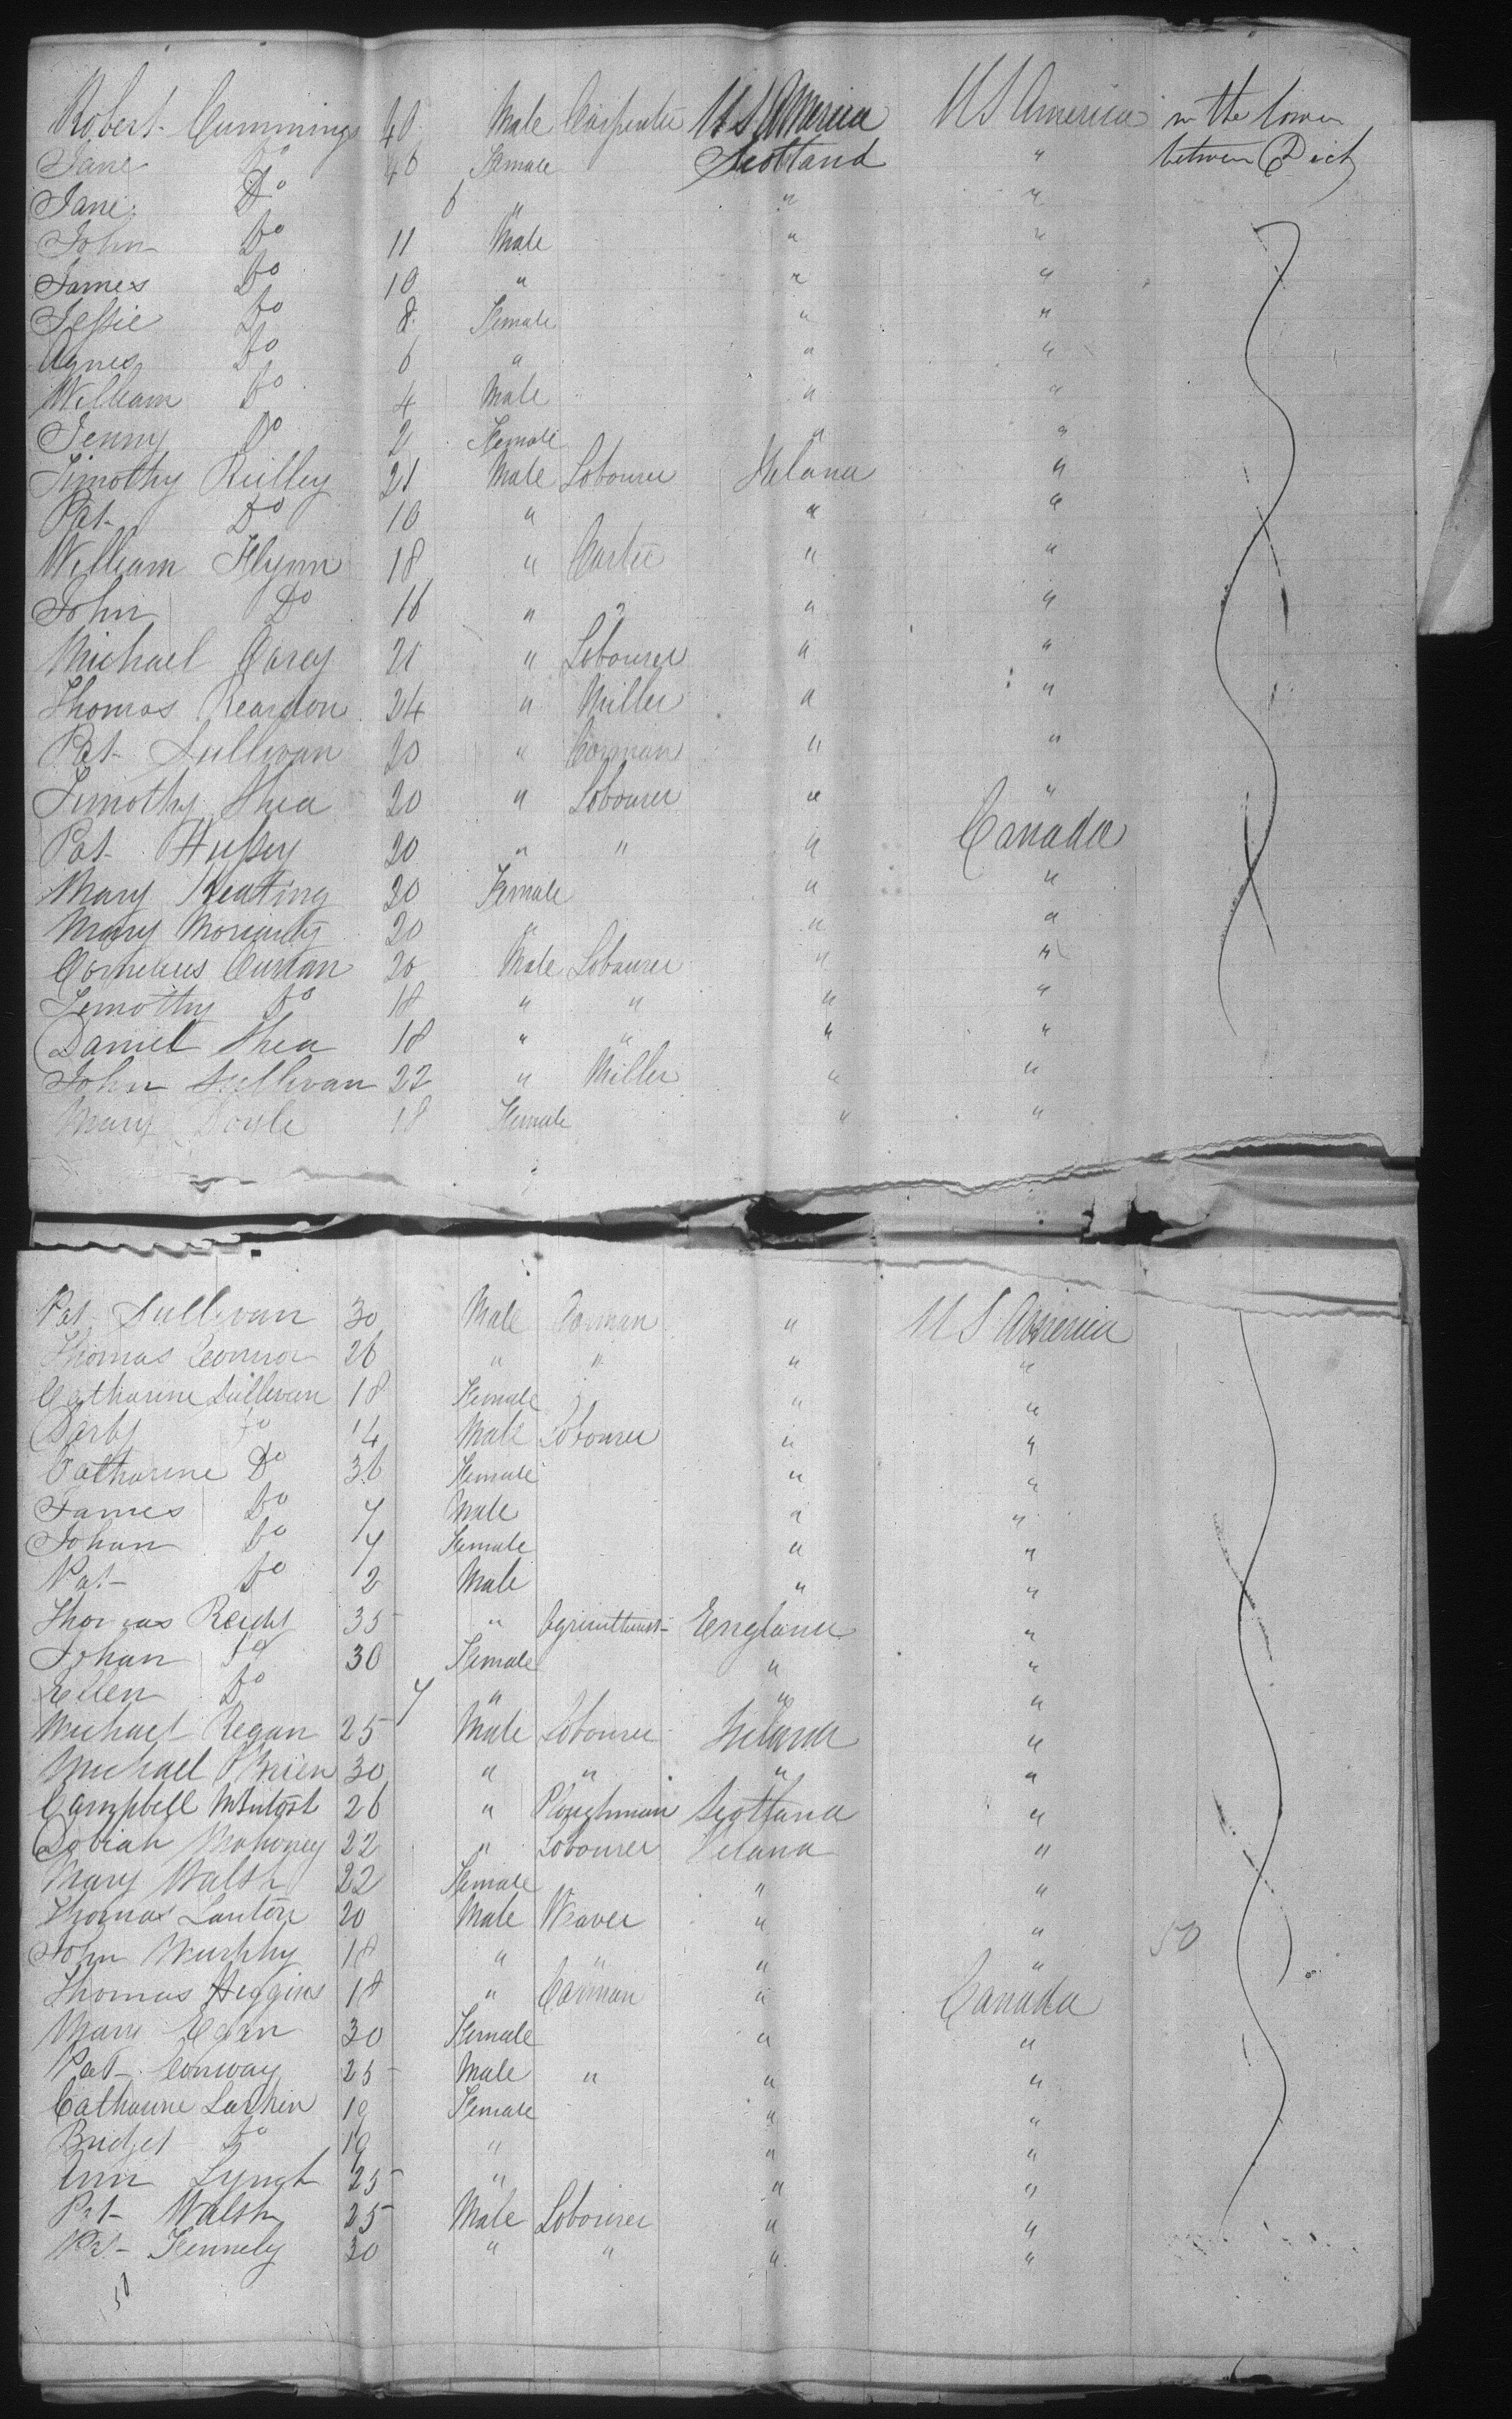 Robert Cummings 40 Male Carpenter U S America U S America in the lower
Jane Do 40 Female Scotland " between Deck
Jane Do 6 " " "
John Do 11 Male " "
James Do 10 " " "
Jessie Do 8 Female " "
Agnes Do 6 " " "
William Do 4 Male " "
Jenny Do 2 Female " "
Timothy Reilley 21 Male Labourer Ireland "
Pat Do 10 " " "
William Flynn 18 " " "
John Do 16 " " "
Michael Carey 21 " Labourer " "
Thomas Reardon 24 " Miller " "
Pat Sullivan 20 " Carman " "
Timothy Shea 20 " Labourer " "
Pat Hussey 20 " " " Canada
Mary Keating 20 Female " "
Mary Moriarty 20 " " "
Cornelius Curran 20 Male Labourer " "
Timothy Do 18 " " " "
Daniel Shea 18 " " " "
John Sullivan 22 " Miller " "
Mary Doyle 18 Female " "
Pat Sullivan 30 Male Carman " U S America
Thomas Connor 26 " " " "
Catharine Sullivan 18 Female " "
Darby Do 14 Male Labourer " "
Catharine Do 36 Female " "
James Do 7 Male " "
Johan Do 7 Female " "
Pat Do 2 Male " "
Thomas 35 " Agriculturist England "
Johan Do 30 Female " "
Ellen Do 7 " " "
Michael Regan 25 Male Labourer Ireland "
Michael O'Brien 30 " " " "
Campbell McIntosh 26 " Ploughman Scotland "
Mahoney 22 " Labourer Ireland "
Mary Walsh 22 Female " "
Thomas Lanton 20 Male Weaver " "
John Murphy 18 " " " " 50
Thomas Heggins 18 " Carman " Canada
Mary Egan 30 Female " "
Pat Conway 25 Male " " "
Catharine Larkin 19 Female " "
Bridget Do 19 " " "
Ann Lynch 25 " " "
Pat Walsh 25 Male Labourer " "
Pat Kennely 30 " " " "